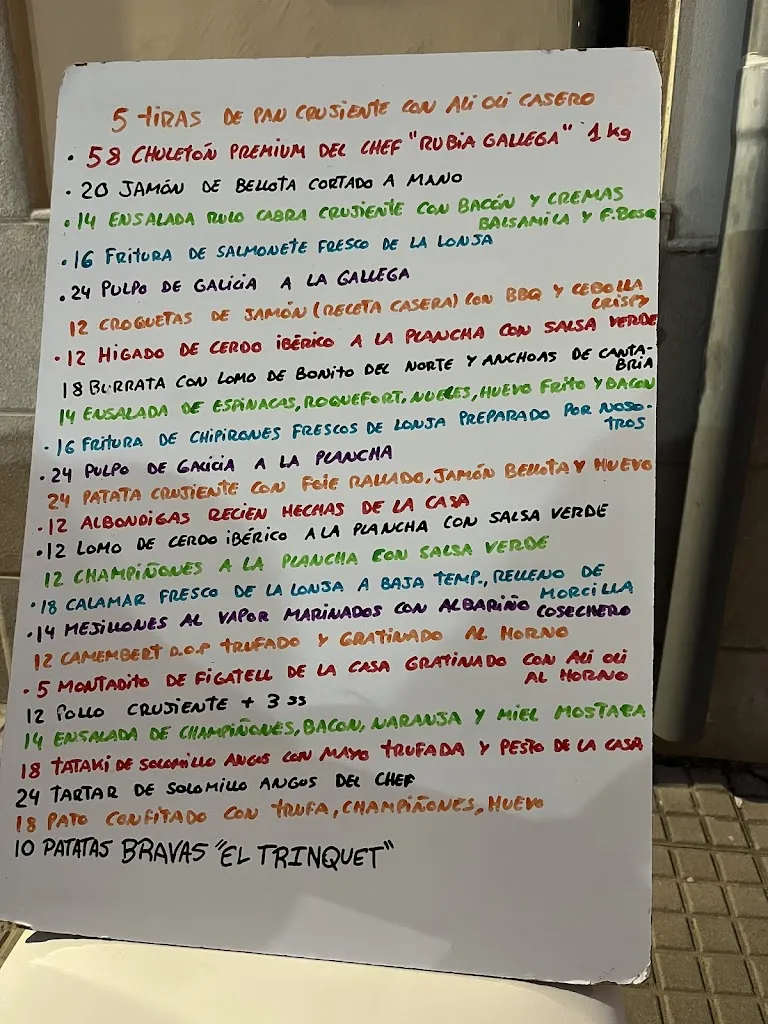 5 tiRAS DE PAN CRUJIENTE CON ALi OLi CASERO
• 58 CHULETÓN PREMIUM DEL CHEF "RUBIA GALLEGA" 1 kg
• 20 JAMÓN DE BELLOTA CORTADO A MANO
• 14 ENSALADA RULO CABRA CRUJIENTE CON BACÓN Y CREMAS
BALSAMILA Y F. BOSQ
• 16 FRITURA DE SALMONETE FRESCO DE LA LONJA
• 24 PULPO DE GALICIA A LA GALLEGA
12 CROQUETAS DE JAMÓN (RECETA CASERA) CON BBQ Y CEBOLLA
CRISPY
• 12 HIGADO DE CERDO IBÉRICO A LA PLANCHA CON SALSA VERDE
18 BURRATA CON LOMO DE BONITO DEL NORTE Y ANCHOAS DE CANTA-
BRIA
14 ENSALADA DE ESPINACAS, ROQUEFORT, NUECES, HUEVO FRITO Y BACON
• 16 FRITURA DE CHIPIRONES FRESCOS DE LONJA PREPARADO POR NOSO-
TROS
• 24 PULPO DE GALICIA A LA PLANCHA
24 PATATA CRUJIENTE CON FOIE RALLADO, JAMÓN BELLOTA Y HUEVO
• 12 ALBONDIGAS RECIEN HECHAS DE LA CASA
• 12 LOMO DE CERDO IBÉRICO A LA PLANCHA CON SALSA VERDE
12 CHAMPIÑONES A LA PLANCHA CON SALSA VERDE
• 18 CALAMAR FRESCO DE LA LONJA A BAJA TEMP., RELLENO DE
MORCILLA
• 14 MEJILLONES AL VAPOR MARINADOS CON ALBARIÑO COSECHERO
12 CAMEMBERT D.O.P TRUFADO Y GRATINADO AL HORNO
• 5 MONTADITO DE FIGATELL DE LA CASA GRATINADO CON ALi OLi
AL HORNO
12 POLLO CRUJIENTE + 3 SS
14 ENSALADA DE CHAMPIÑONES, BACON, NARANJA Y MIEL MOSTAZA
18 TATAKI DE SOLOMILLO ANGUS CON MAYO TRUFADA Y PESTO DE LA CASA
24 TARTAR DE SOLOMILLO ANGUS DEL CHEF
18 PATO CONFITADO CON TRUFA, CHAMPIÑONES, HUEVO
10 PATATAS BRAVAS "EL TRINQUET"